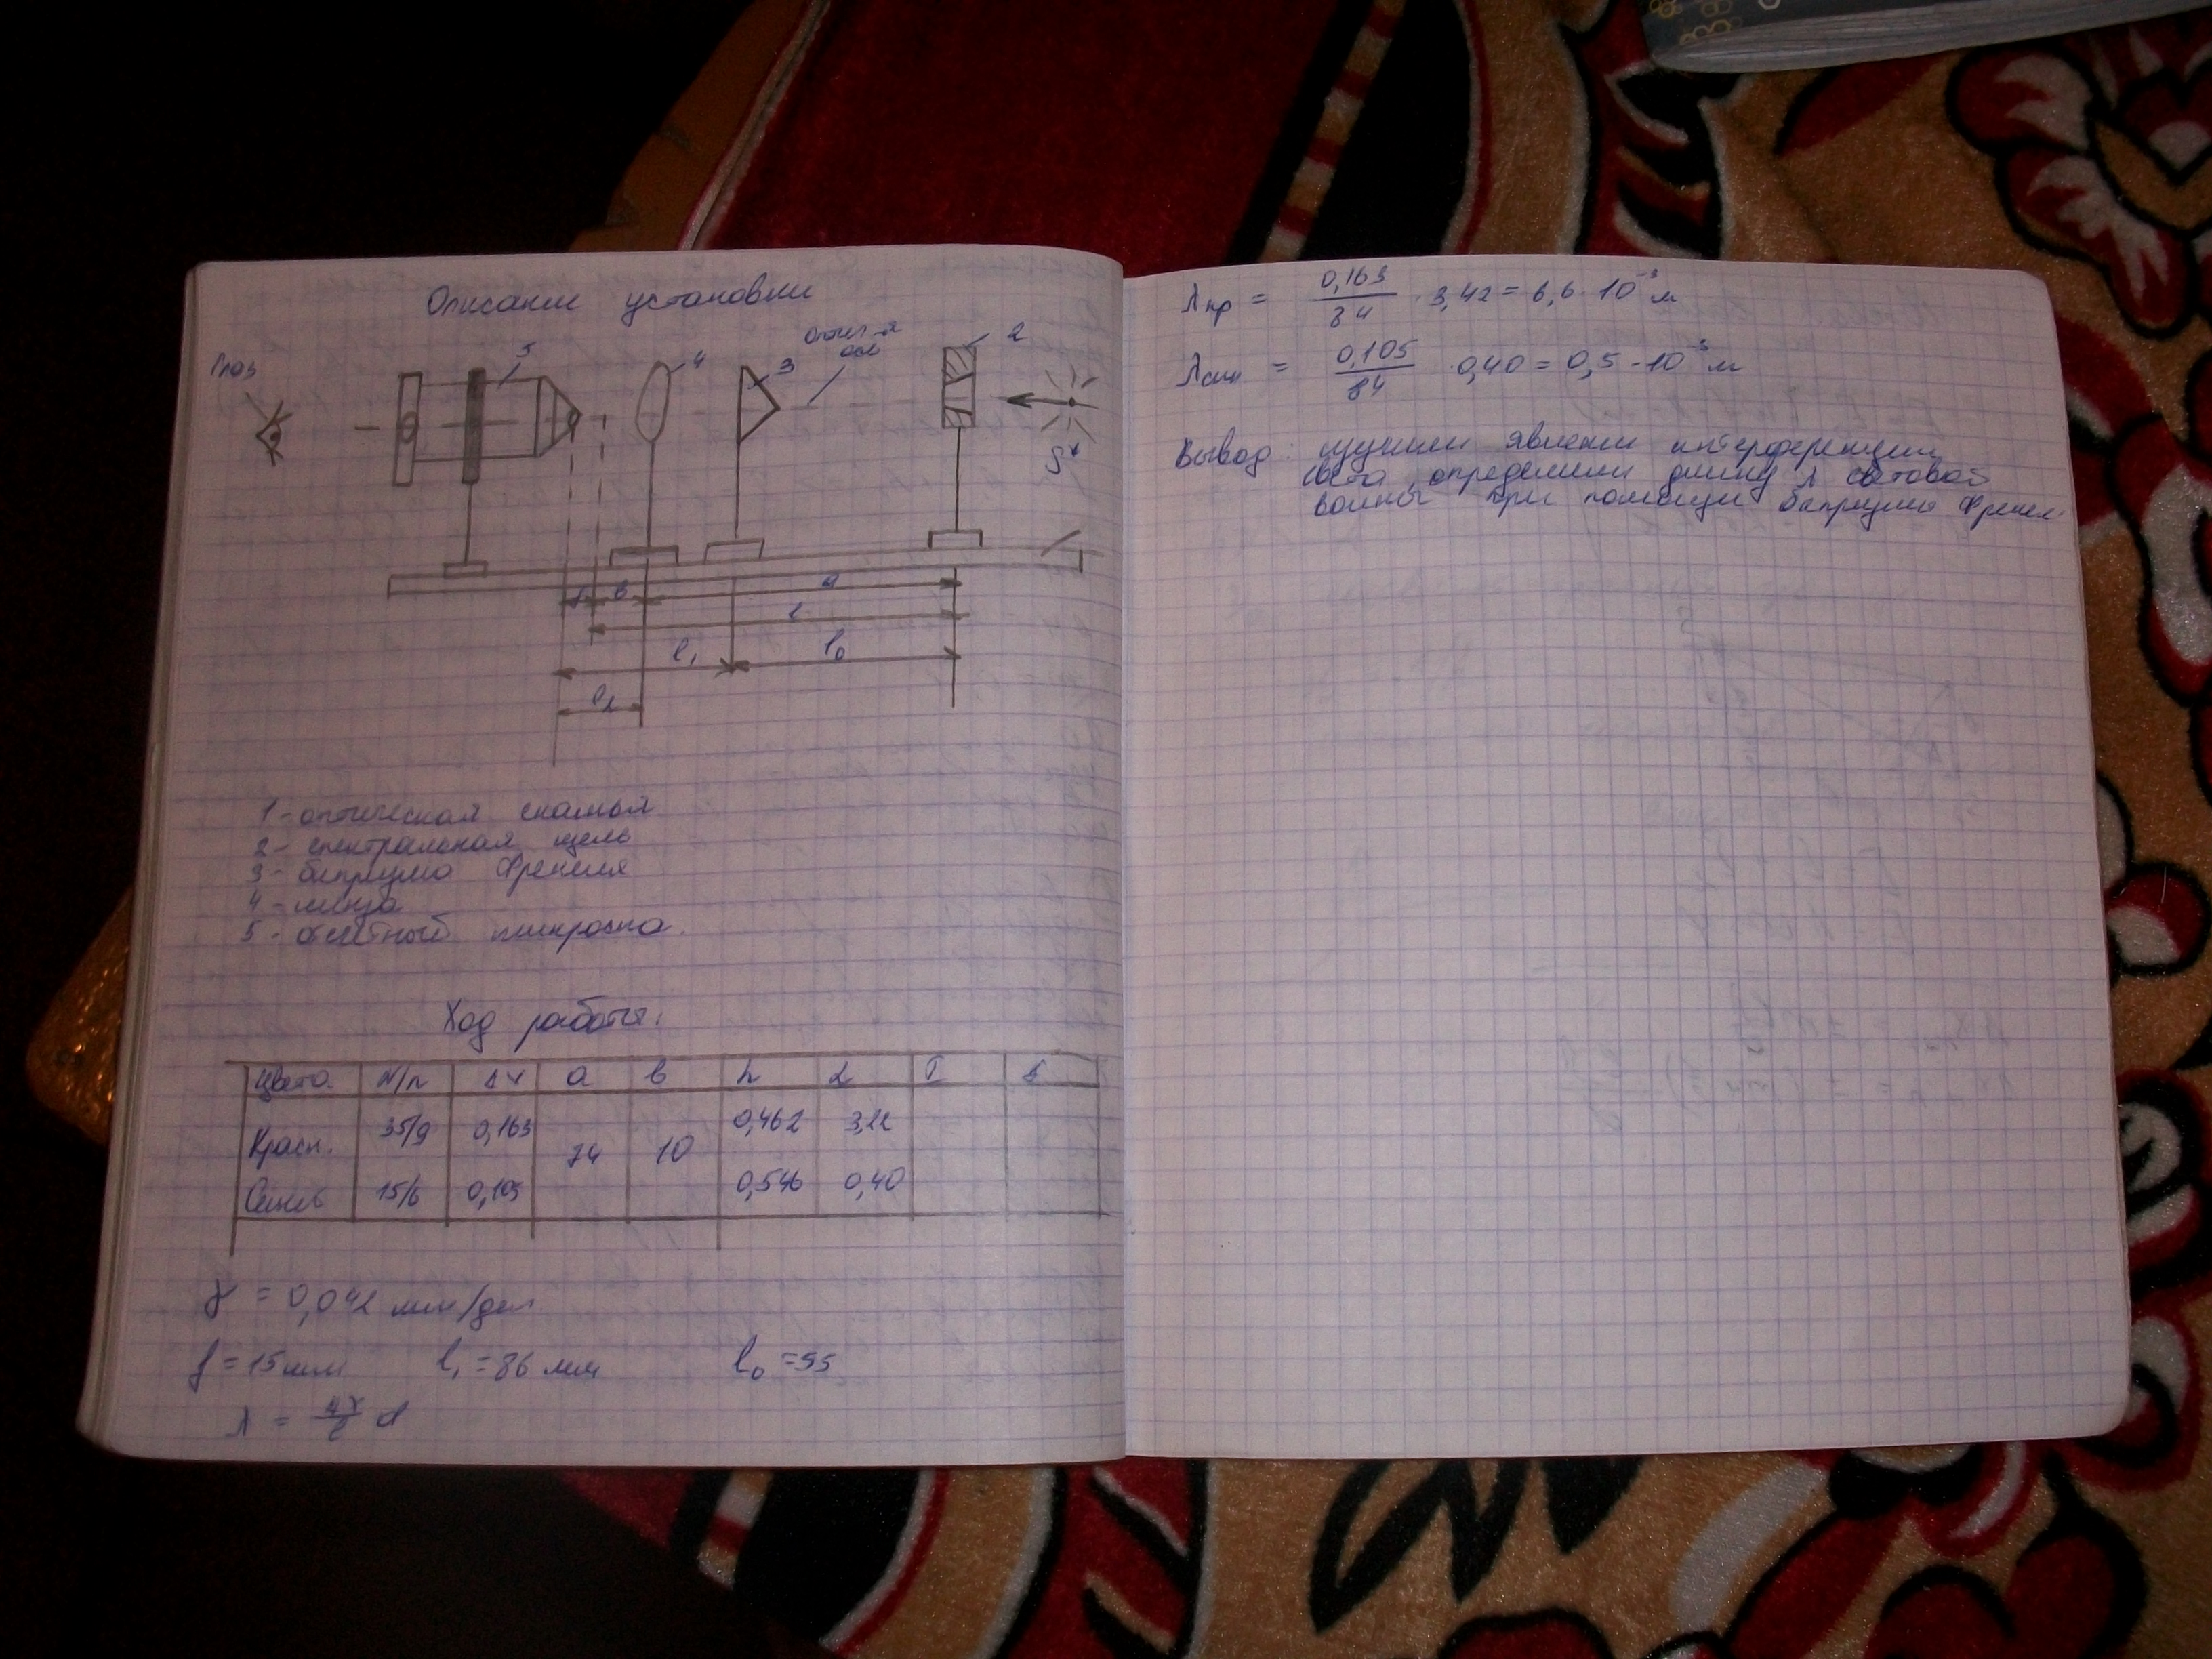 Описание установки
Глаз
5
4
3
оптич-я
ось
2
S*
f в a
l
l₁ l₀
l₂
1 - оптическая скамья
2 - спектральная щель
3 - бипризма Френеля
4 - линза
5 - отсчётный микроскоп.
Ход работы:
Цвета N/n Δx a в h d
Красн. 35/9 0,163 74 10 0,462
Синий 15/6 0,105 0,546 0,40
γ = 0,042 мм/дел
f = 15 мм l₁ = 86 мм l₀ = 55
λ = Δx/l d
λкр = 0,163/84 · 3,42 = 6,6 · 10⁻³ м
λсин = 0,105/84 · 0,40 = 0,5 · 10⁻³ м
Вывод: изучили явление интерференции
света, определили длину λ световой
волны при помощи бипризмы Френел